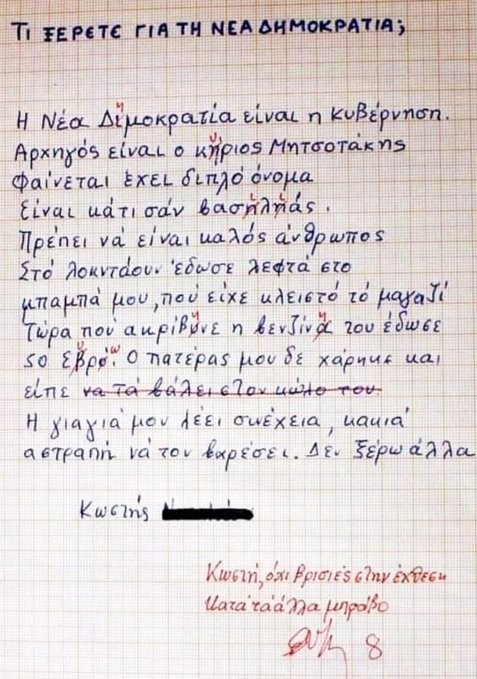 ΤΙ ΞΕΡΕΤΕ ΓΙΑ ΤΗ ΝΕΑ ΔΗΜΟΚΡΑΤΙΑ;
Η Νέα Διμοκρατία είναι η κυβέρνηση.
Αρχηγός είναι ο κήριος Μητσοτάκης
Φαίνεται έχει διπλό όνομα
Είναι κάτι σάν βασηληάς.
Πρέπει νά είναι καλός άνθρωπος
Στό λοκντάουν έδωσε λεφτά στο
μπαμπά μου, πού είχε κλειστό τό μαγαζί
Τώρα πού ακρίβυνε η βενζίνα του έδωσε
50 εβρό. Ο πατέρας μου δε χάρηκε και
είπε να τά βάλει στον κώλο του.
Η γιαγιά μου λέει συνέχεια, κακιά
αστραπή νά τον βαρέσει. Δεν ξέρω άλλα
Κωστής
Κωστή, όχι βρισιές στην έκθεση
Κατά τά άλλα μπράβο
8